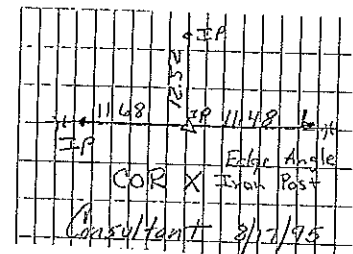 IP
1252
1168 IP 1148
IP
Edge Angle
COR X Iron Post
Consultant 8/17/95